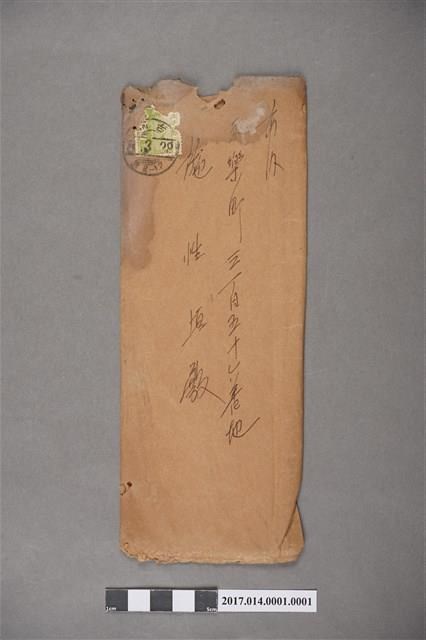 市内
樂町三丁目五十七番地
施性垣殿
3 29
1cm
5cm
2017.014.0001.0001